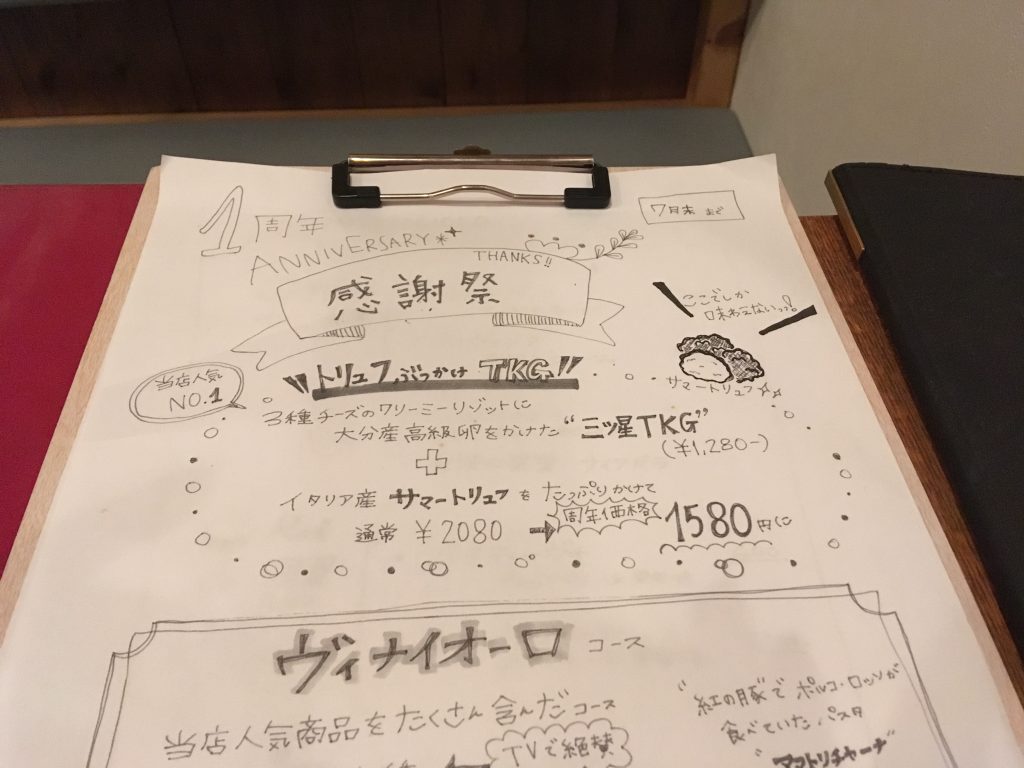 1周年
7月末まで
ANNIVERSARY
THANKS!!
感謝祭
ここでしか
味わえないっっ!
当店人気
NO.1
トリュフぶっかけ TKG!!
サマートリュフ
3種チーズのクリーミーリゾットに
大分産高級卵をかけた "三ツ星TKG"
(¥1,280-)
+
イタリア産 サマートリュフを たっぷりかけて
通常 ¥2080 → 周年価格 1580円に
ヴィナイオーロ コース
当店人気商品をたくさん含んだコース
TVで絶賛
"紅の豚"で ポルコ・ロッソが
食べていた パスタ
"アマトリチャーナ"